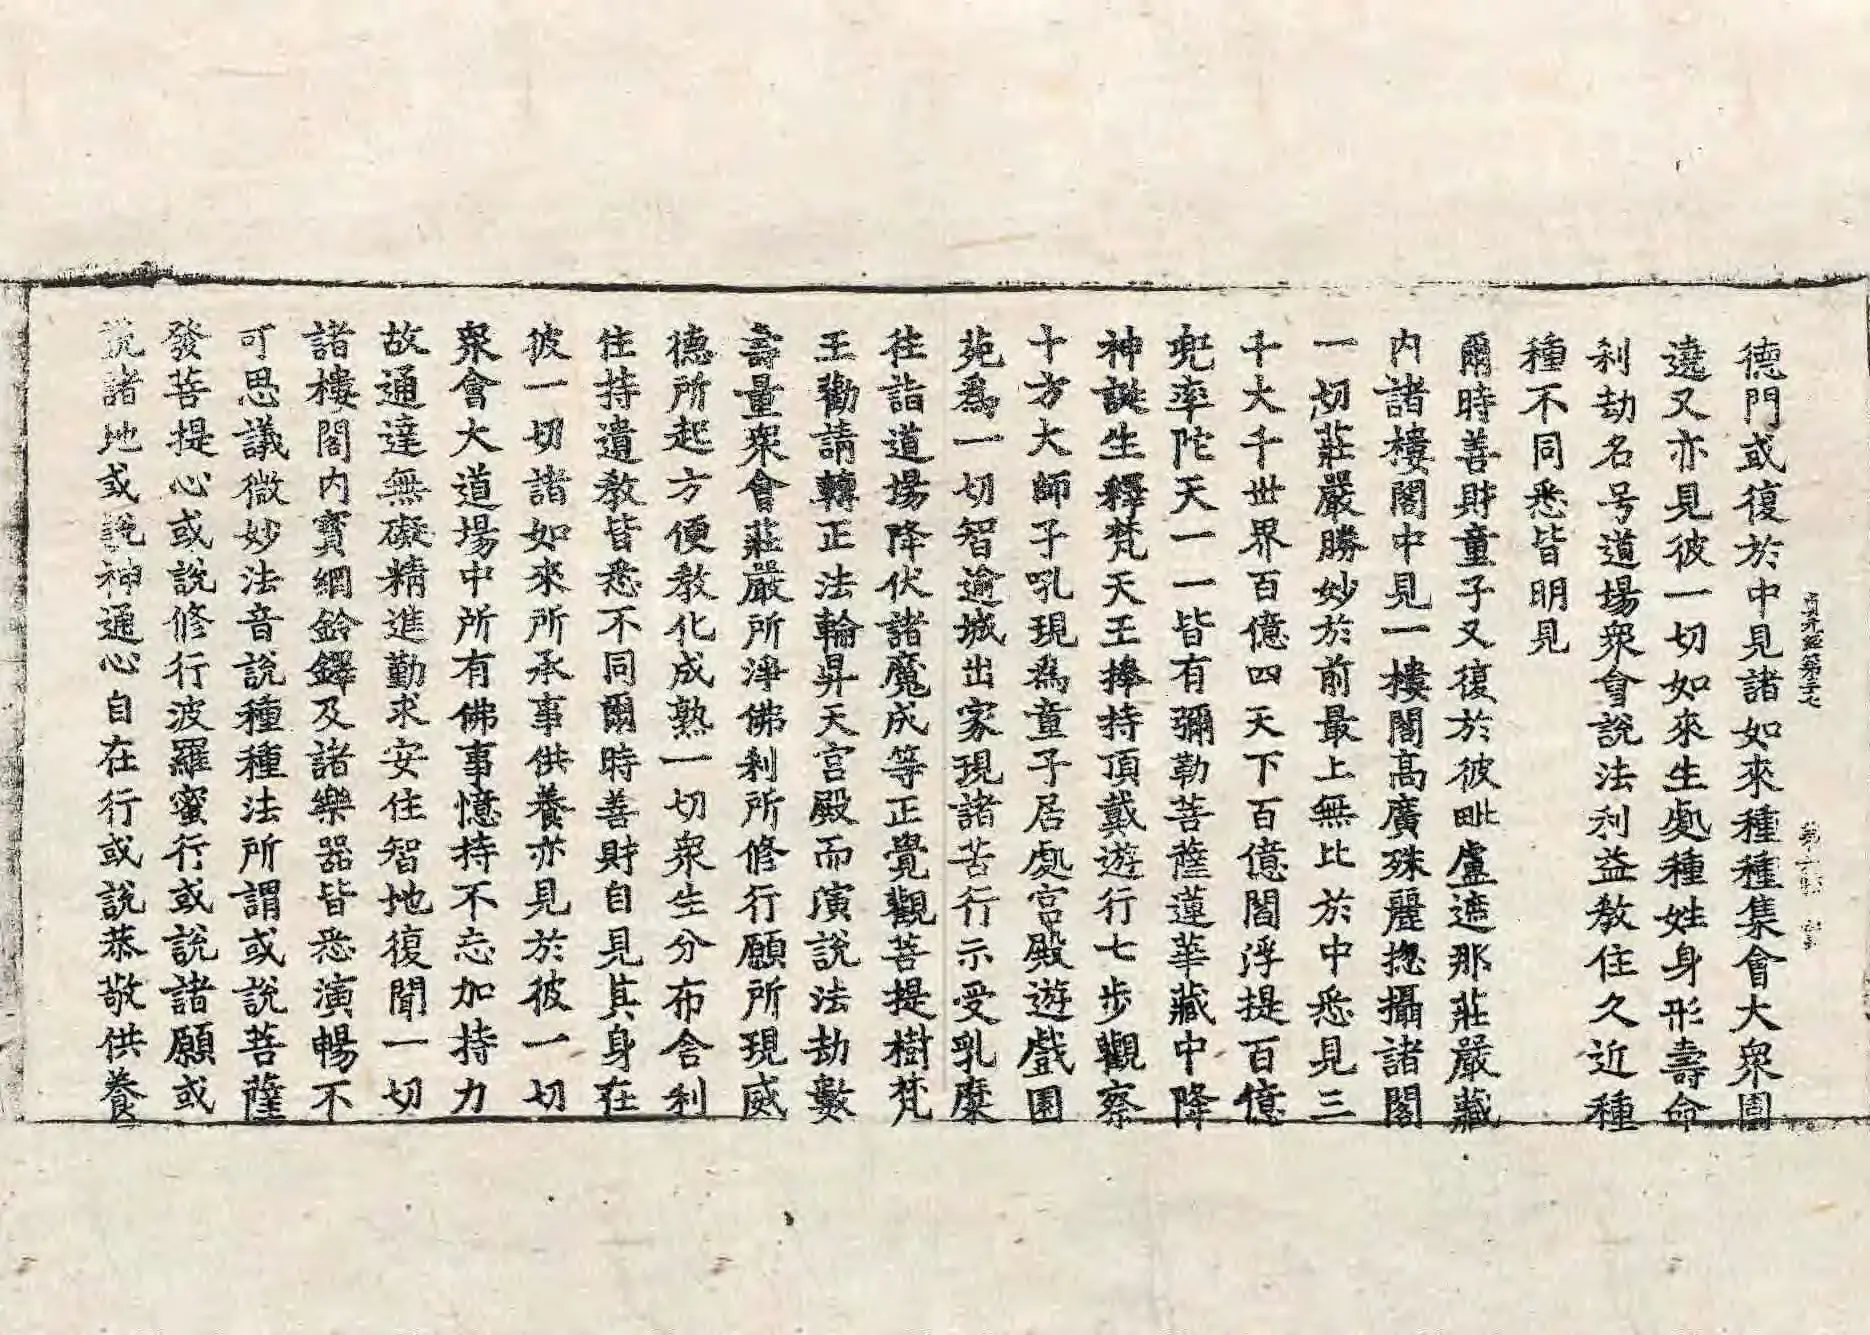 德門或復於中見諸如來種種集會大衆圍
遶又亦見彼一切如來生處種姓身形壽命
刹劫名号道場衆會說法利益教住久近種
種不同悉皆明見
爾時善財童子又復於彼毗盧遮那莊嚴藏
内諸樓閣中見一樓閣高廣殊麗揔攝諸閣
一切莊嚴勝妙於前最上無比於中悉見三
千大千世界百億四天下百億閻浮提百億
兜率陀天一一皆有彌勒菩薩蓮華藏中降
神誕生釋梵天王捧持頂戴遊行七步觀察
十方大師子吼現爲童子居處宮殿遊戲園
苑爲一切智逾城出家現諸苦行示受乳糜
往詣道場降伏諸魔成等正覺觀菩提樹梵
王勸請轉正法輪昇天宮殿而演說法劫數
壽量衆會莊嚴所淨佛刹所修行願所現威
德所起方便教化成熟一切衆生分布舍利
住持遺教皆悉不同爾時善財自見其身在
彼一切諸如來所承事供養亦見於彼一切
衆會大道場中所有佛事憶持不忘加持力
故通達無礙精進勤求安住智地復聞一切
諸樓閣内寳網鈴鐸及諸樂器皆悉演暢不
可思議微妙法音說種種法所謂或說菩薩
發菩提心或說修行波羅蜜行或說諸願或
說諸地或說神通心自在行或說恭敬供養